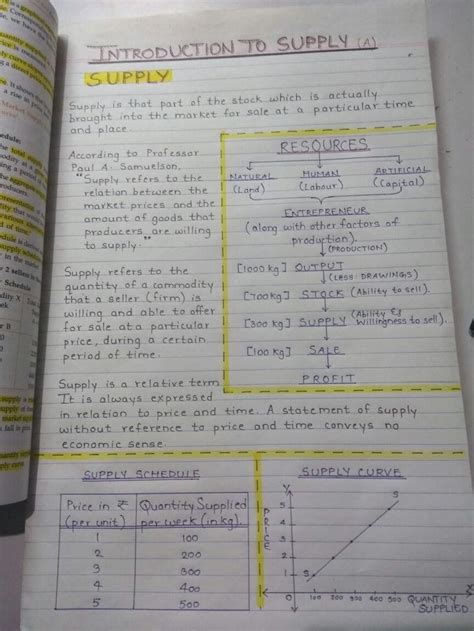 INTRODUCTION TO SUPPLY (A)
SUPPLY
Supply is that part of the stock which is actually
brought into the market for sale at a particular time
and place.
According to Professor
Paul A. Samuelson,
"Supply refers to the
relation between the
market prices and the
amount of goods that
producers are willing
to supply."
Supply refers to the
quantity of a commodity
that a seller (firm) is
willing and able to offer
for sale at a particular
price, during a certain
period of time.
RESOURCES
NATURAL HUMAN ARTIFICIAL
(Land) (Labour) (Capital)
ENTREPRENEUR
(along with other factors of
production).
(PRODUCTION)
[1000 kg] OUTPUT
(LESS: DRAWINGS)
[700 kg] STOCK (Ability to sell).
[300 kg] SUPPLY (Ability & Willingness to sell).
[100 kg] SALE
PROFIT
Supply is a relative term
It is always expressed
in relation to price and time. A statement of supply
without reference to price and time conveys no
economic sense.
SUPPLY SCHEDULE
Price in ₹ Quantity Supplied
(per unit) per week (in kg).
1 100
2 200
3 300
4 400
5 500
SUPPLY CURVE
Y
PRICE
5
4
3
2
1
0
S
S
100 200 300 400 500
X
QUANTITY
SUPPLIED